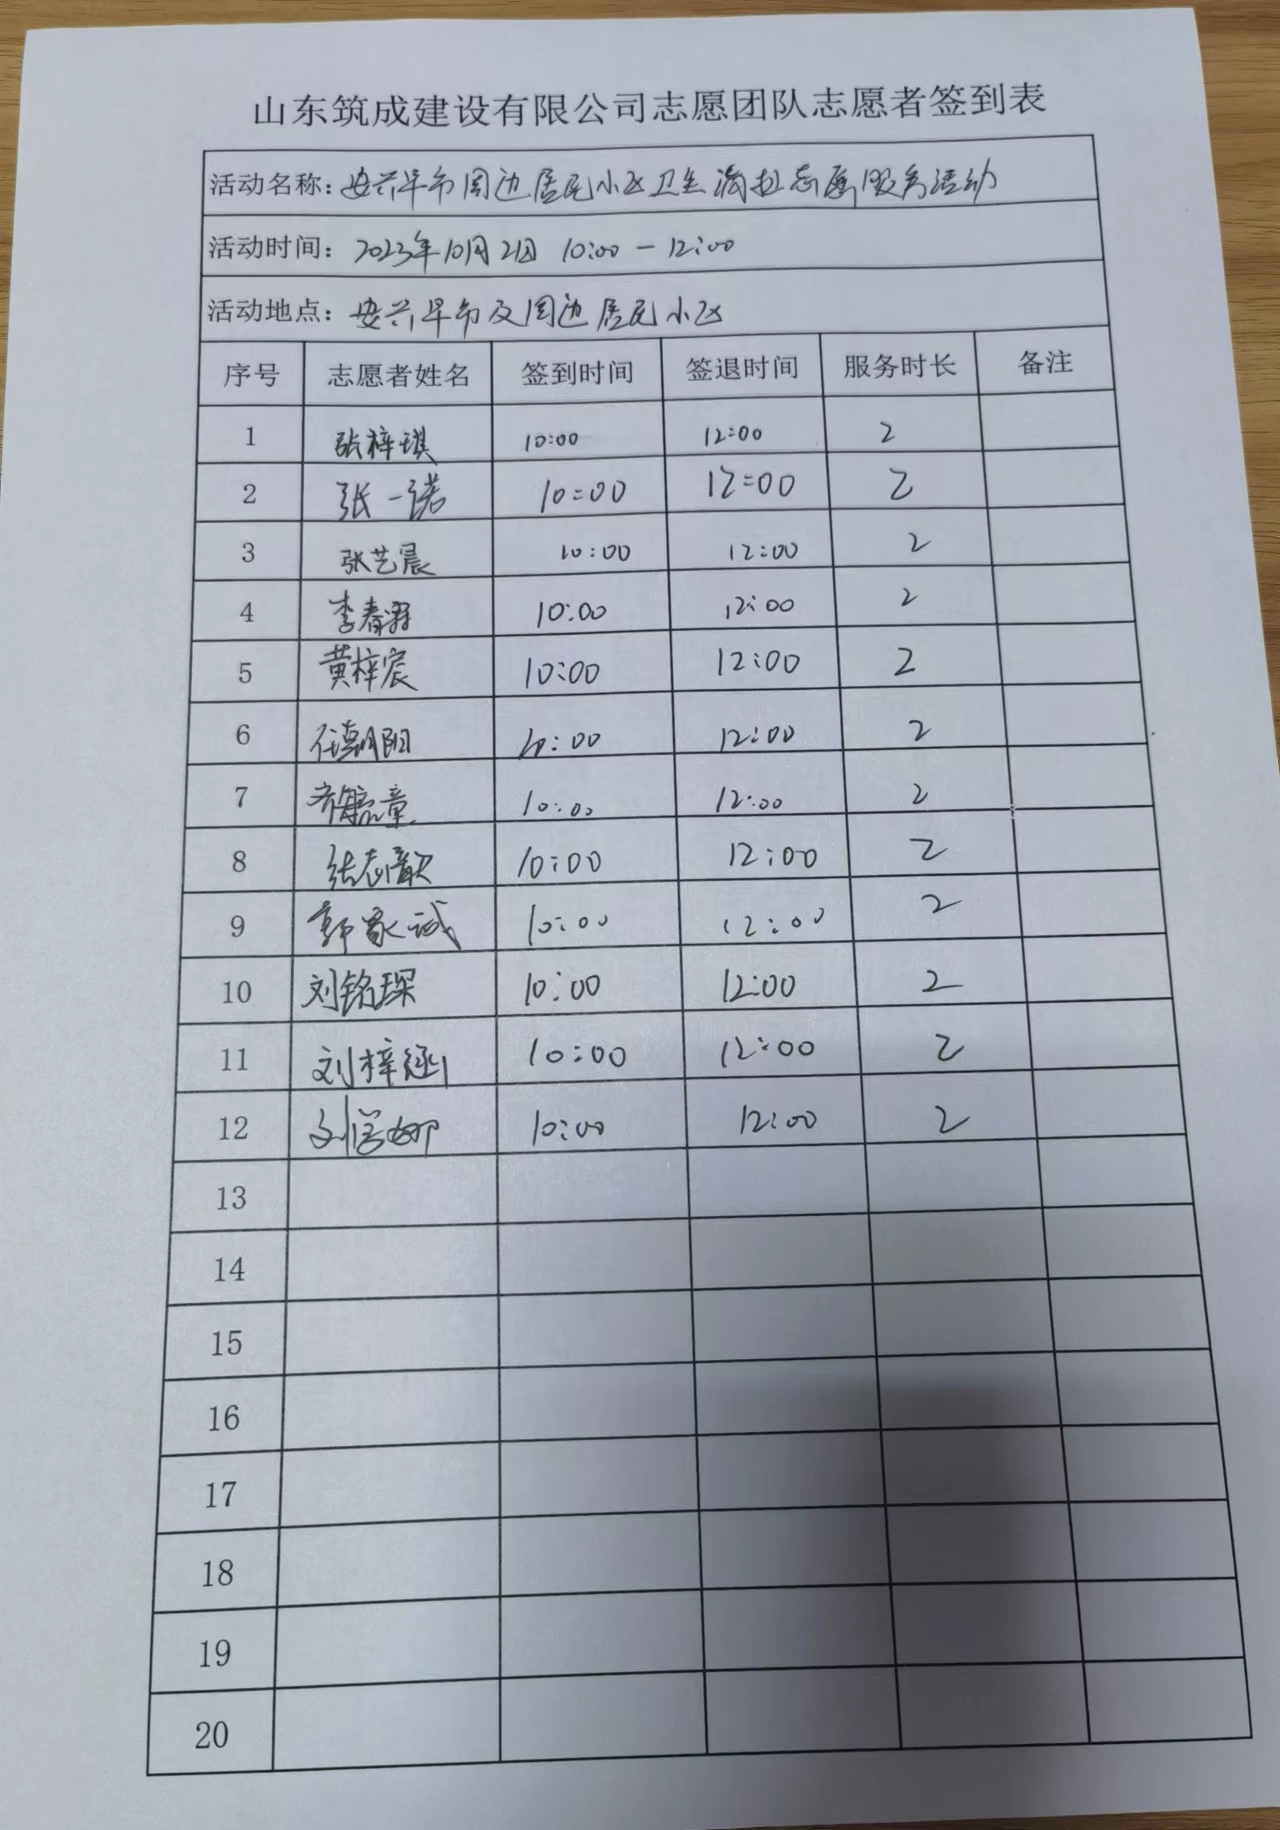 山东筑成建设有限公司志愿团队志愿者签到表
活动名称: 安兴早市周边居民小区卫生清扫志愿服务活动
活动时间: 2023年10月21日 10:00-12:00
活动地点: 安兴早市及周边居民小区
序号 志愿者姓名 签到时间 签退时间 服务时长 备注
1 张梓琪 10:00 12:00 2
2 张一诺 10:00 12:00 2
3 张艺晨 10:00 12:00 2
4 李春羽 10:00 12:00 2
5 黄梓宸 10:00 12:00 2
6 任朝阳 10:00 12:00 2
7 10:00 12:00 2
8 张志歆 10:00 12:00 2
9 郭家诚 10:00 12:00 2
10 刘铭琛 10:00 12:00 2
11 刘梓涵 10:00 12:00 2
12 10:00 12:00 2
13
14
15
16
17
18
19
20